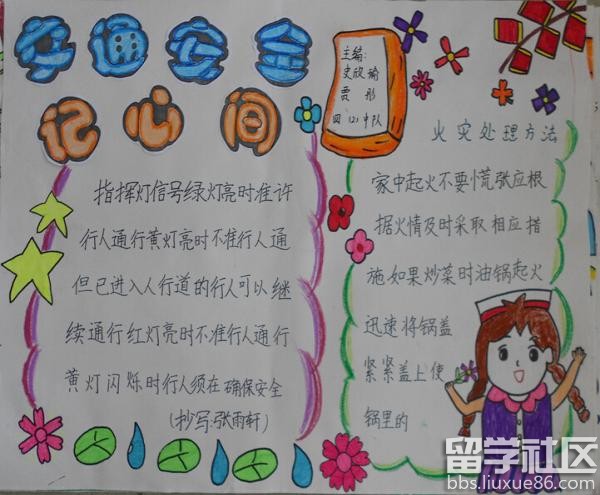 交通安全
记心间
主编:
史欣瑜
贾彤
四(2)中队
指挥灯信号绿灯亮时准许
行人通行黄灯亮时不准行人通
但已进入人行道的行人可以继
续通行红灯亮时不准行人通行
黄灯闪烁时行人须在确保安全
(抄写:张雨轩)
火灾处理方法
家中起火不要慌张应根
据火情及时采取相应措
施如果炒菜时油锅起火
迅速将锅盖
紧紧盖上使
锅里的
留学社区
bbs.liuxue86.com